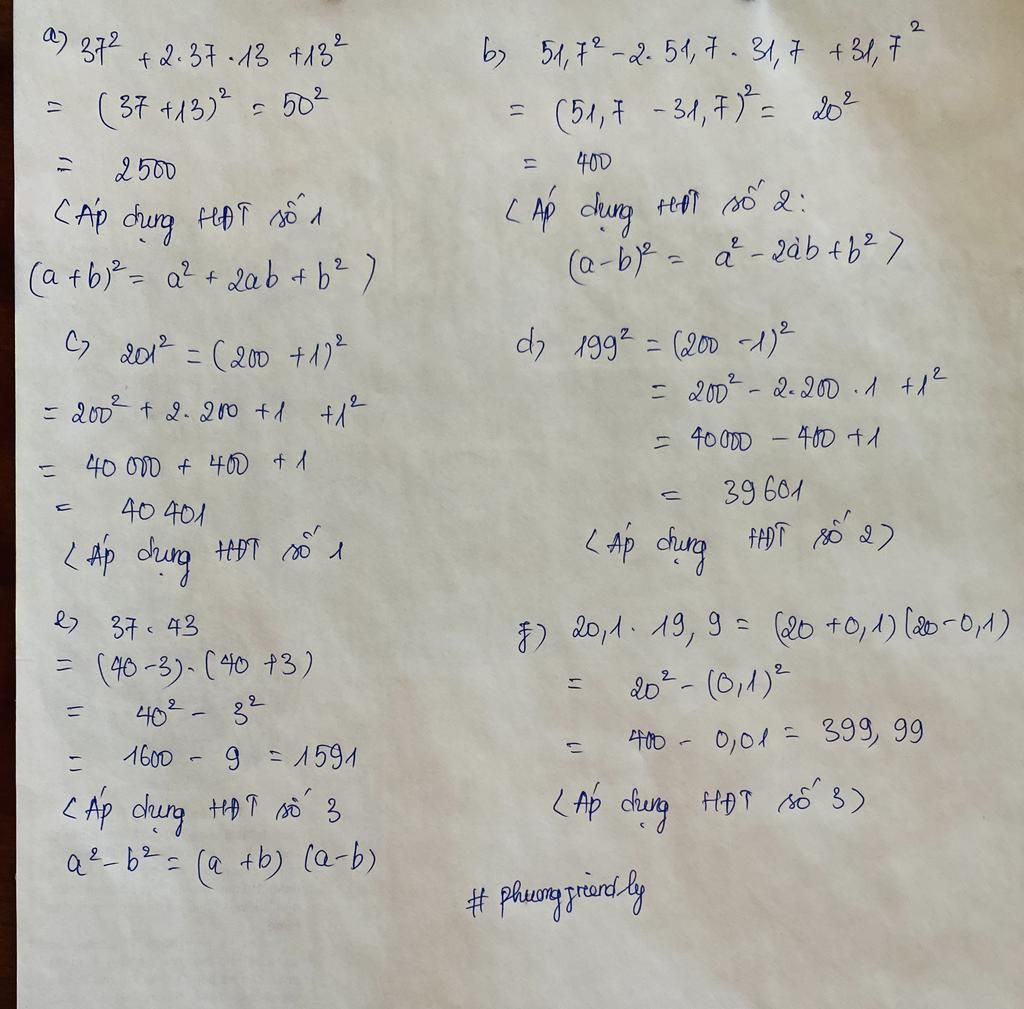 a) 37² + 2.37.13 + 13²
= (37 + 13)² = 50²
= 2500
< Áp dụng HĐT số 1
(a + b)² = a² + 2ab + b² >
b) 51,7² - 2. 51,7 . 31,7 + 31,7²
= (51,7 - 31,7)² = 20²
= 400
< Áp dụng HĐT số 2:
(a-b)² = a² - 2ab + b² >
c) 201² = (200 + 1)²
= 200² + 2. 200 + 1 + 1²
= 40 000 + 400 + 1
= 40 401
< Áp dụng HĐT số 1
d) 199² = (200 - 1)²
= 200² - 2.200 . 1 + 1²
= 40000 - 400 + 1
= 39601
< Áp dụng HĐT số 2>
e) 37. 43
= (40 - 3).(40 + 3)
= 40² - 3²
= 1600 - 9 = 1591
< Áp dụng HĐT số 3
a² - b² = (a + b) (a - b)
f) 20,1. 19,9 = (20 + 0,1)(20 - 0,1)
= 20² - (0,1)²
= 400 - 0,01 = 399,99
< Áp dụng HĐT số 3>
# phuongfriendly